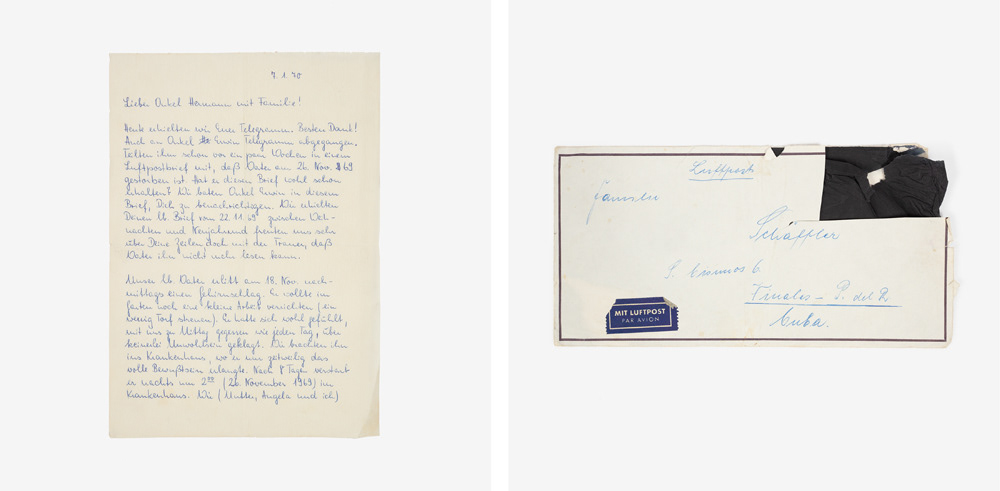 7.1.70
Lieber Onkel Hermann mit Familie!
Heute erhielten wir Euer Telegramm. Besten Dank!
Auch an Onkel Erwin Telegramm abgegangen.
Teilten ihm schon vor ein paar Wochen in einem
Luftpostbrief mit, daß Vater am 26. Nov. 69
gestorben ist. Hat er diesen Brief wohl schon
erhalten? Wir baten Onkel Erwin in diesem
Brief, Dich zu benachrichtigen. Wir erhielten
Deinen lb. Brief vom 22.11.69 zwischen Weih-
nachten und Neujahr und freuten uns sehr
über Deine Zeilen doch mit der Trauer, daß
Vater ihn nicht mehr lesen kann.
Unser lb. Vater erlitt am 18. Nov. nach-
mittags einen Gehirnschlag. Er wollte im
Garten noch eine kleine Arbeit verrichten (ein
wenig Torf streuen). Er hatte sich wohl gefühlt,
mit uns zu Mittag gegessen wie jeden Tag, über
keinerlei Unwohlsein geklagt. Wir brachten ihn
ins Krankenhaus, wo er nur zeitweilig das
volle Bewußtsein erlangte. Nach 8 Tagen verstarb
er nachts um 2 (26. November 1969) im
Krankenhaus. Wir (Mutter, Angela und ich)
Luftpost
Familie
Schäffler
MIT LUFTPOST
PAR AVION
Cuba.